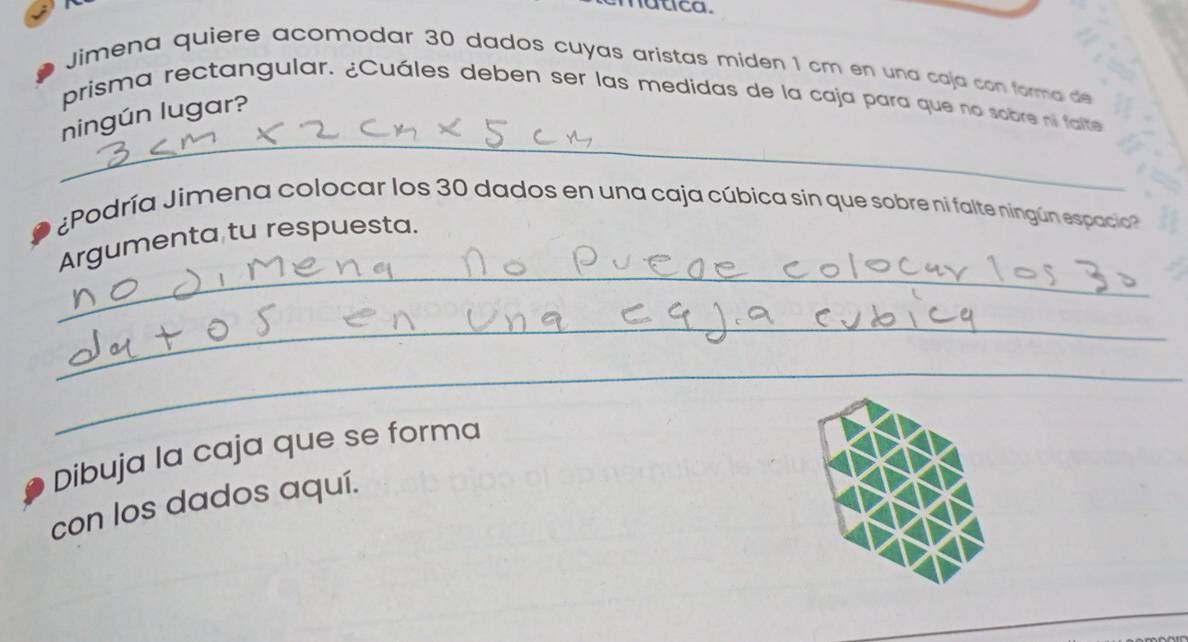 Jimena quiere acomodar 30 dados cuyas aristas miden 1 cm en una caja con forma de
prisma rectangular. ¿Cuáles deben ser las medidas de la caja para que no sobre ni falte
ningún lugar?
3 cm x 2 cm x 5 cm
¿Podría Jimena colocar los 30 dados en una caja cúbica sin que sobre ni falte ningún espacio?
Argumenta tu respuesta.
no Jimena no puede colocar los 30
datos en una caja cubica
Dibuja la caja que se forma
con los dados aquí.